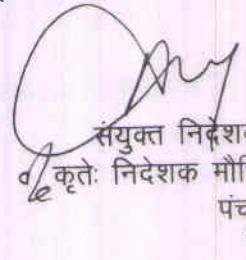 संयुक्त निदेशक
कृतेः निदेशक मौ
पंच